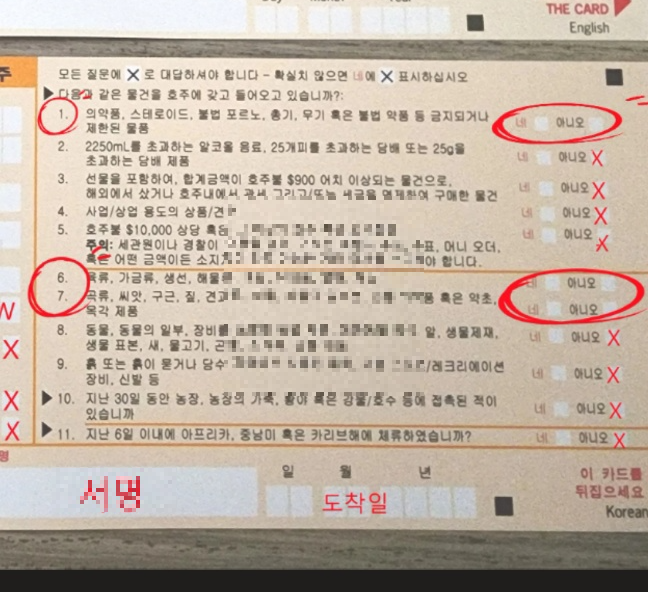 THE CARD
English
주
모든 질문에 X 로 대답하셔야 합니다 – 확실치 않으면 네에 X 표시하십시오
다음과 같은 물건을 호주에 갖고 들어오고 있습니까?:
1. 의약품, 스테로이드, 불법 포르노, 총기, 무기 혹은 불법 약품 등 금지되거나 네 아니오
제한된 물품
2. 2250mL를 초과하는 알코올 음료, 25개피를 초과하는 담배 또는 25g을 네 아니오 X
초과하는 담배 제품
3. 선물을 포함하여, 합계금액이 호주불 $900 어치 이상되는 물건으로, 네 아니오 X
해외에서 샀거나 호주내에서 관세 그리고/또는 세금을 면제하여 구매한 물건
4. 사업/상업 용도의 상품/견 네 아니오 X
5. 호주불 $10,000 상당 혹은 네 아니오 X
주의: 세관원이나 경찰이 표, 머니 오더,
혹은 어떤 금액이든 소지 야 합니다.
6. 육류, 가금류, 생선, 해물 네 아니오
7. 곡류, 씨앗, 구근, 짚, 견과 혹은 약초, 네 아니오
목각 제품
8. 동물, 동물의 일부, 장비를 알, 생물제재, 네 아니오 X
생물 표본, 새, 물고기, 곤
9. 흙 또는 흙이 묻거나 담수 /레크리에이션 네 아니오 X
장비, 신발 등
10. 지난 30일 동안 농장, 농장의 가축, 황야 혹은 강물/호수 등에 접촉된 적이 네 아니오 X
있습니까
11. 지난 6일 이내에 아프리카, 중남미 혹은 카리브해에 체류하였습니까? 네 아니오 X
W
X
X
X
명
일 월 년
서명
도착일
이 카드를
뒤집으세요
Korean